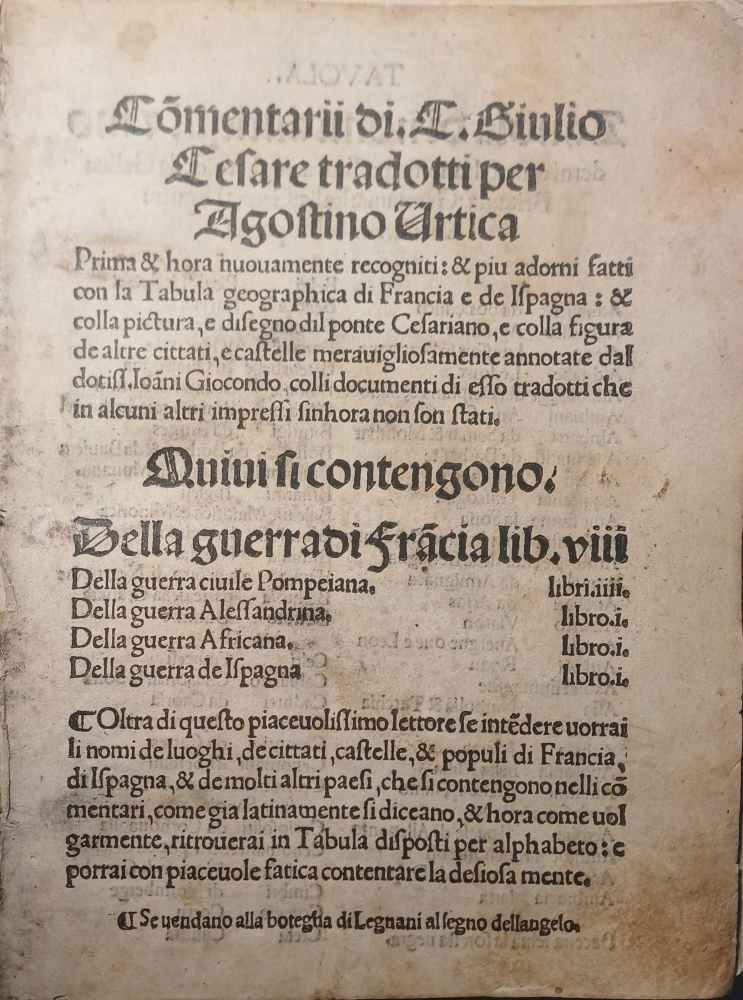 Cōmentarii di. C. Giulio
Ceſare tradotti per
Agoſtino Urtica
Prima & hora nuouamente recogniti: & piu adorni fatti
con la Tabula geographica di Francia e de Iſpagna : &
colla pictura, e diſegno dil ponte Ceſariano, e colla figura
de altre cittati, e caſtelle merauiglioſamente annotate dal
dotiſſ. Ioāni Giocondo colli documenti di eſſo tradotti che
in alcuni altri impreſſi ſinhora non ſon ſtati.
Quiui ſi contengono.
Della guerra di Frācia lib. viii
Della guerra ciuile Pompeiana. libri.iiii.
Della guerra Aleſſandrina. libro.i.
Della guerra Africana. libro.i.
Della guerra de Iſpagna libro.i.
¶ Oltra di queſto piaceuoliſſimo lettore ſe intēdere uorrai
li nomi de luoghi, de cittati, caſtelle, & populi di Francia,
di Iſpagna, & de molti altri paeſi, che ſi contengono nelli cō
mentari, come gia latinamente ſi diceano, & hora come uol
garmente, ritrouerai in Tabula diſpoſti per alphabeto: e
porrai con piaceuole fatica contentare la deſioſa mente.
¶ Se uendano alla botegha di Legnani al ſegno dellangelo.